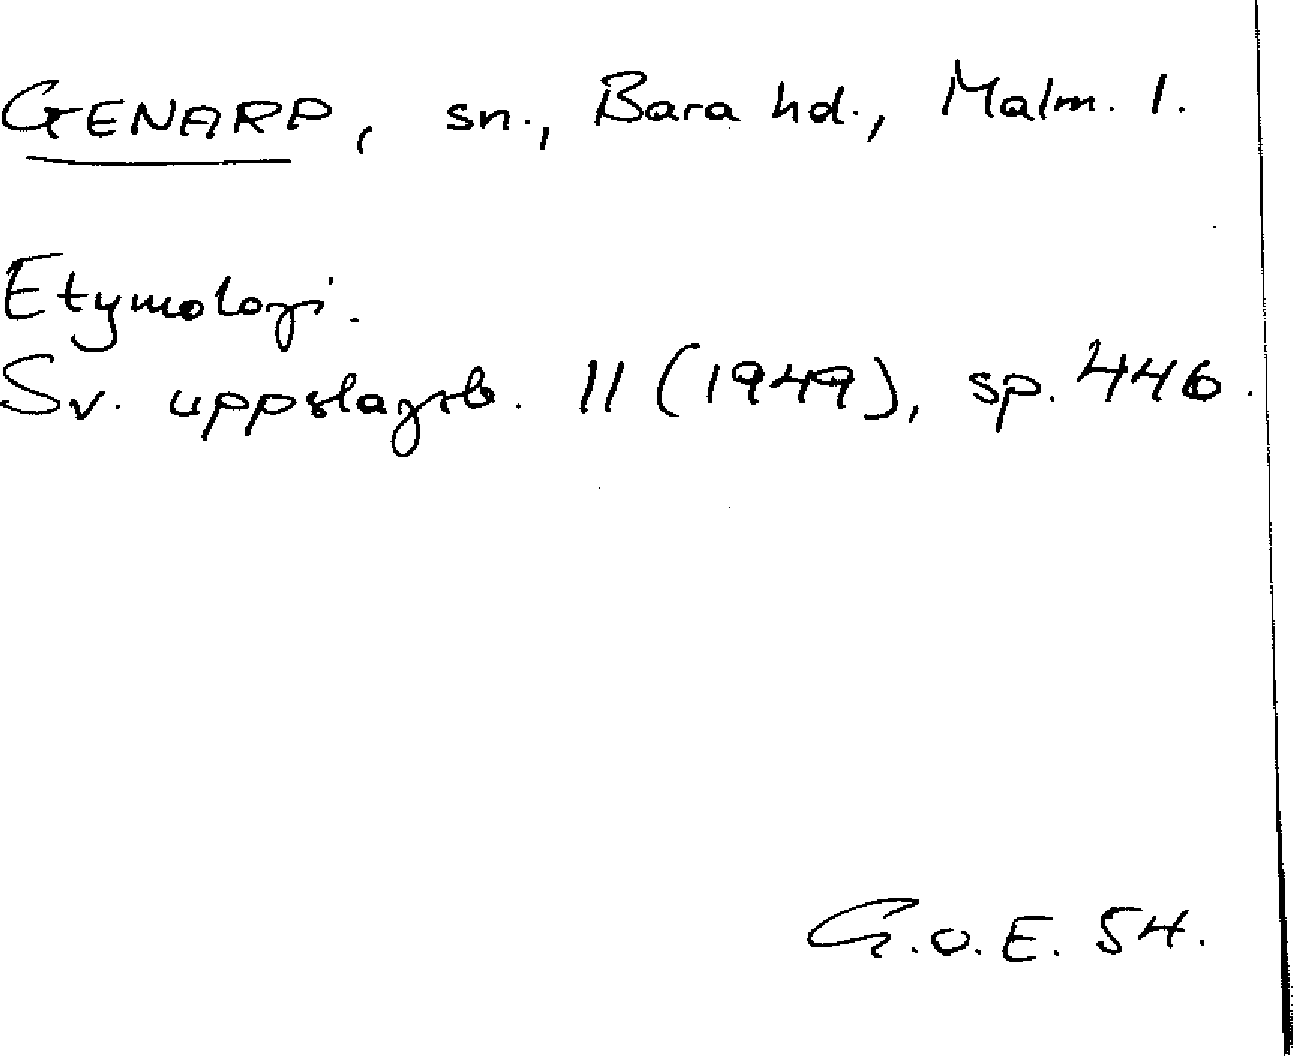 GENARP, sn., Bara hd., Malm. l.
Etymologi.
Sv. uppslagsb. 11 (1949), sp. 446.
G.O.E. 54.